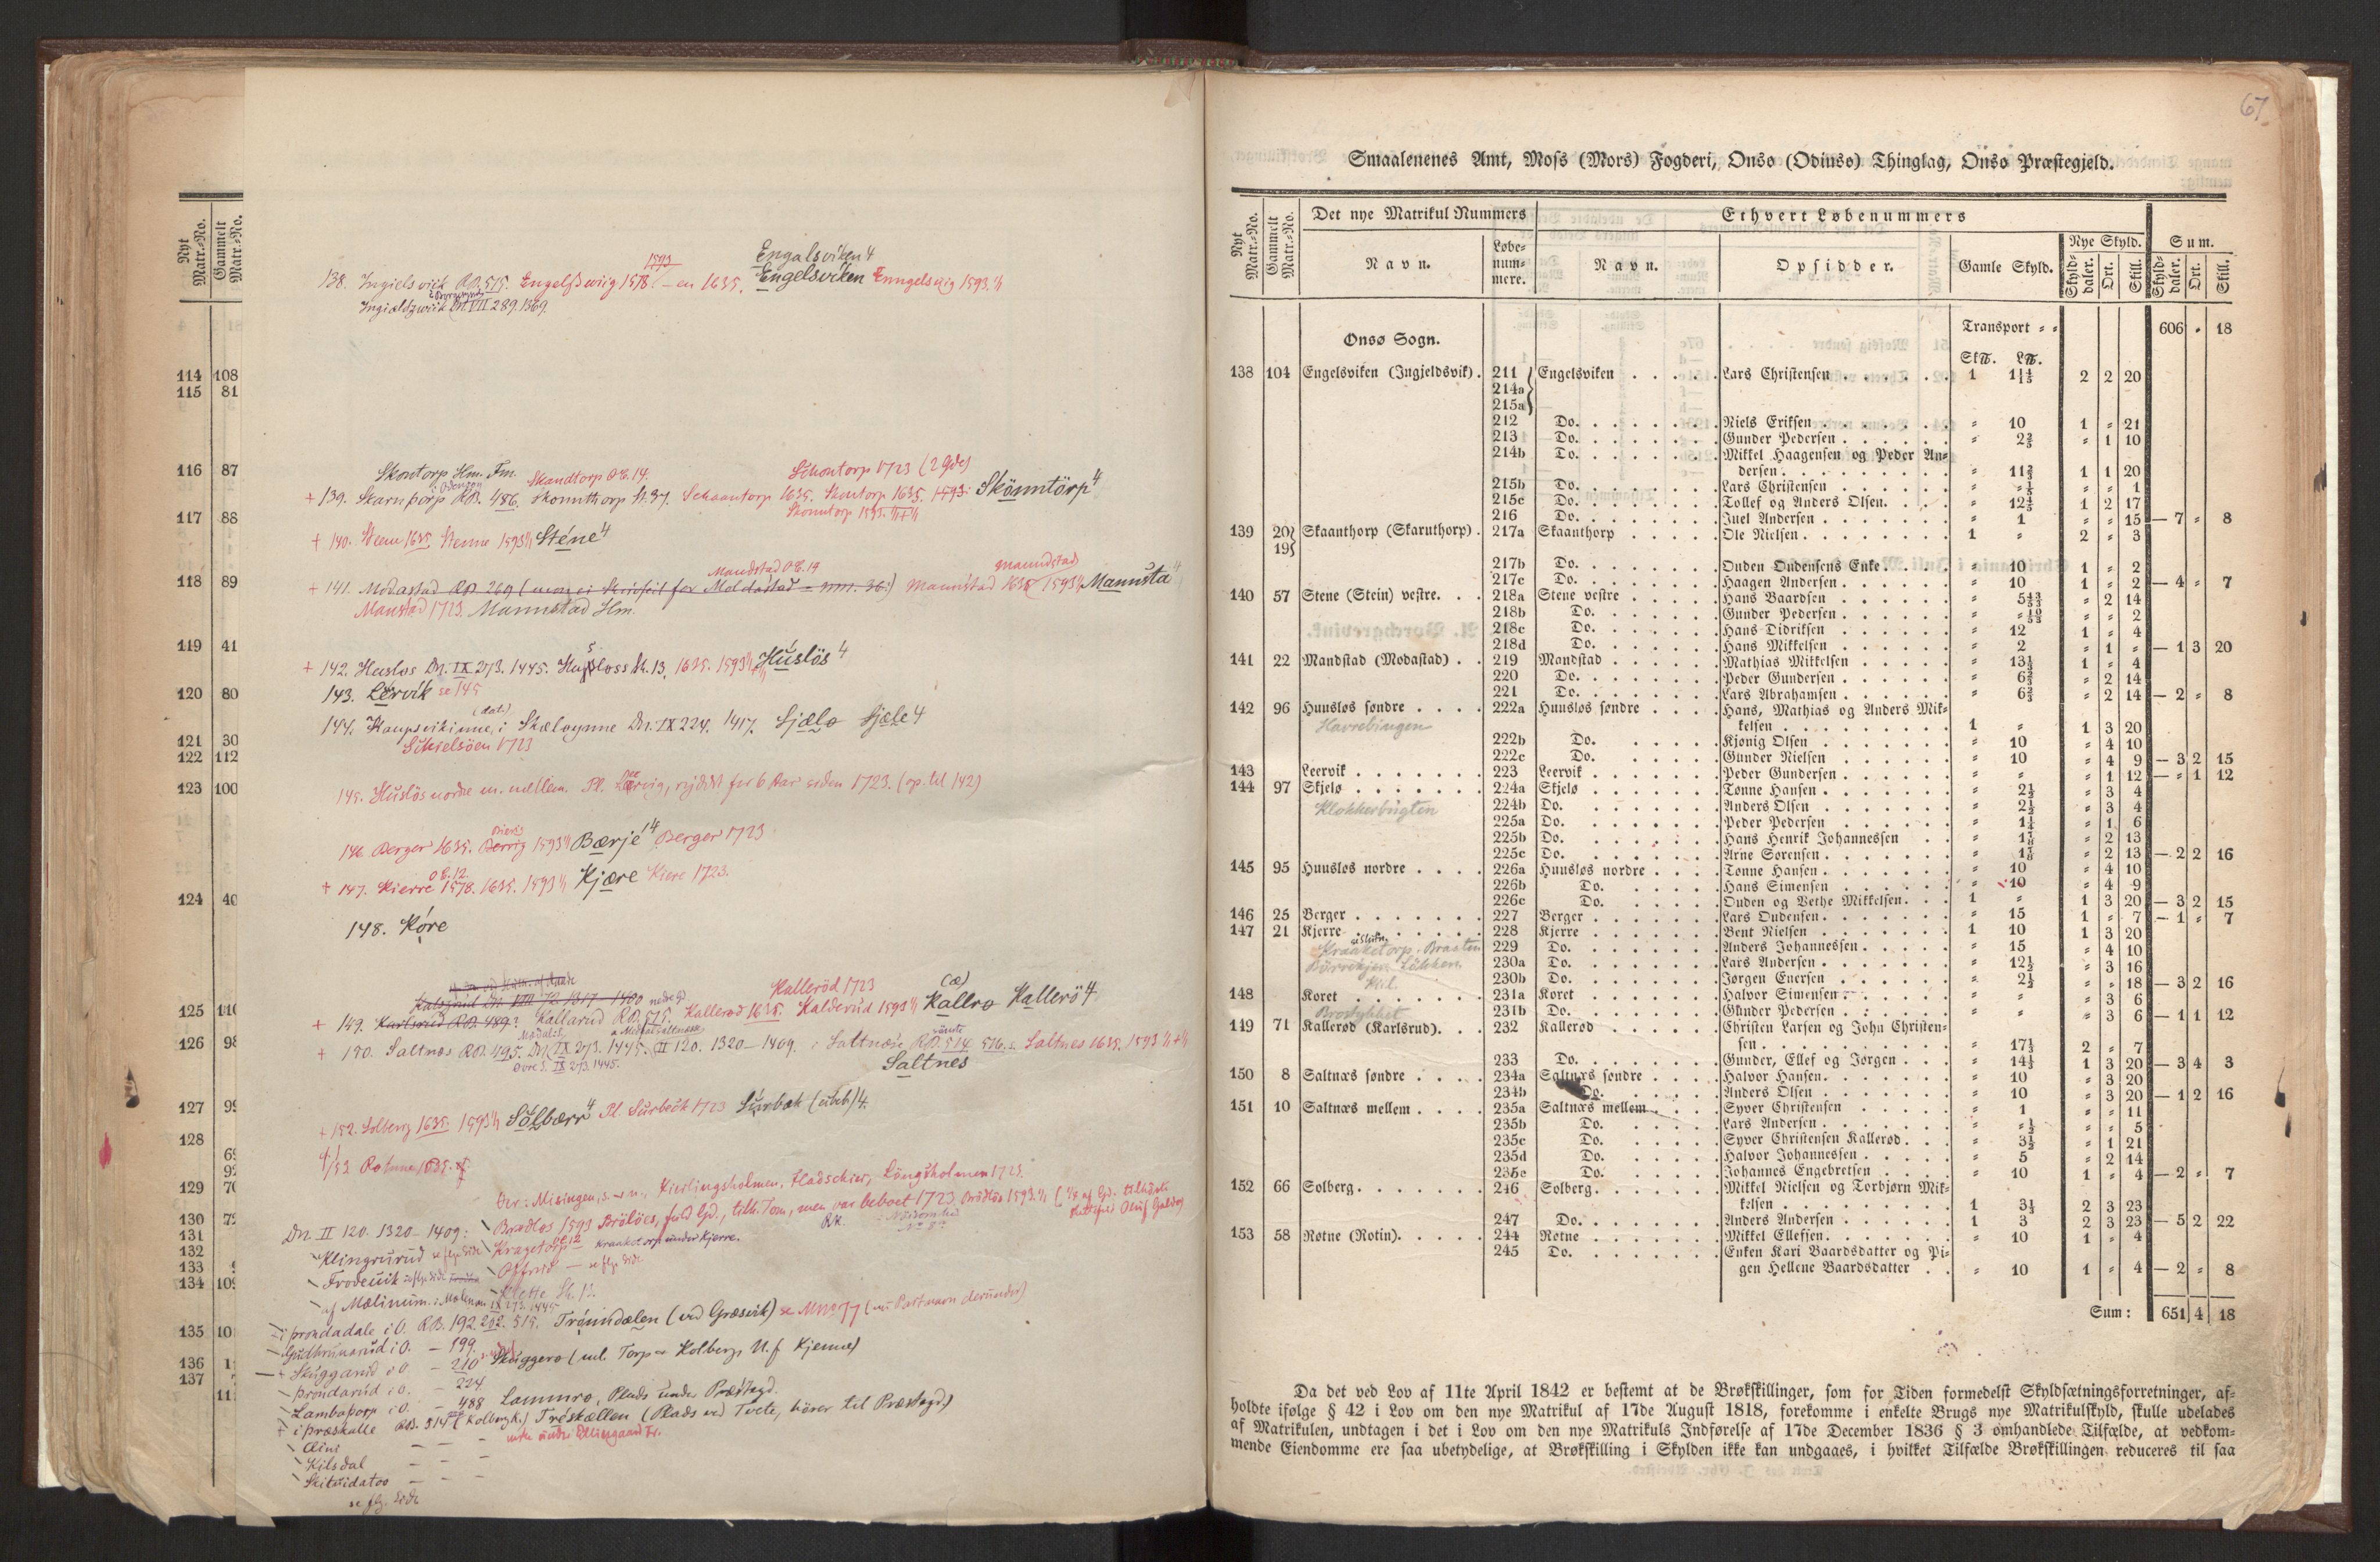 Nyt Matr.-No.
Gammelt Matr.-No.
114 108
115 81
116 87
117 88
118 89
119 41
120 80
121 30
122 112
123 100
124 40
125 110
126 98
127 99
128
129 70
130 79
131
132
133
134 109
135
136
137
Engalsviken 4
138. Ingielsvik RB. 515. Engelsswiig 1578 – en 1635. Engelsviken Enngelsuig 1593. 1/1
DN. VII 289. 1369.
Skontorp Hm. Fm. Skandtorp OE. 14. Schontorp 1723 (2 Gde)
+ 139. Skarnþorp RB. 486. Skonnthorp St. 37. Schaantorp 1635. Skontorp 1635. 1593. Skönntörp 4
Skonntorp 1593.
+ 140. Steen 1635. Stenne 1593 1/1 Sténe 4
Mandstad OE. 19 Manndstad
+ 141. Modastad RB. 269 Mannstad 1635 1593 1/1 Mannsta 4
Manstad 1723. Mannstad Hm.
+ 142. Huslos Dn. IX 273. 1445. Husloss St. 13. 1635. 1593 1/1 Húslös 4
143. Lérvík se 145
144. Kaupsvikinne i Skæløynne Dn. IX 224. 1417. Sjælø Sjæle 4
Schielsöen 1723
145. Huslös nordre m. mellem. Pl. Leervig, ryddit for 6 Aar siden 1723. (op. til 142)
146. Berger 1635. 1593 1/1 Bærje 4 Berger 1723
OE. 12.
+ 147. Kierre 1578. 1635. 1593 1/1 Kjære Kiere 1723.
148. Kóre
Kalleröd 1723
+ 149. Karlsrud RB. 489? Kallarud RB. 515. Kallerod 1635. Kalderud 1593 1/1 Kallrø Kallerö 4
+ 150. Saltnos RB. 495. Dn. IX 273. 1445. II 120. 1320–1409. i Saltnæse RB. 514 516. Saltnes 1635. 1593
øvre S. IX 273. 1445. Saltnes
+ 152. Solberg 1635. 1593 1/1 Sölbærr 4 Pl. Surbeck 1723 Surbæk 4.
153 Rotnne 1635.
Øer: Misingen, s. – n., Kierlingsholmen, Fladschier, Längsholmen 1723.
Dn. II 120. 1320–1409: Brødløs 1593 Brölöes, fuld Gd., men var beboet 1723
Klingrurud se flg. Side Kragetorp – Kraaketorp under Kjerre.
Frodeuik se flg. Side Offrud – se flg. Side
af Mælinum. Klette St. 12.
i þrondadale i O. RB. 192. 202. 515. Trönndælen (ved Græsvik) se MNo 77
Gudhrunarud i O. – 199.
Skuggarud i O. – 210 Skuggerø (ml. Torp – Kolberg N. f. Kjenne)
þrondarud i O. – 224.
Lambaþorp i O. – 488 Lammrø, Plads under Præstegd.
i þræskalle RB. 514 (Kolberg k.) Treskallen (Plads ved Tvete, hører til Præstegd.)
Kilsdal – – –
Skituidatoo – – –
se flg. Side
67
Smaalenenes Amt, Moss (Mors) Fogderi, Onsø (Odinsø) Thinglag, Onsø Præstegjeld.
Nyt Matr.-No. Gammelt Matr.-No. Det nye Matrikul Nummers Ethvert Løbenummers
Navn. Løbe-nummere. Navn. Opsidder. Gamle Skyld. Nye Skyld. Sum.
Skylddaler. Ort. Skill. Skylddaler. Ort. Skill.
Transport = = 606 = 18
Onsø Sogn.
Sk℔. L℔.
138 104 Engelsviken (Ingjeldsvik). 211 Engelsviken Lars Christensen 1 1 14/15 2 2 20
214a
215a
212 Do. Niels Eriksen = 10 1 = 21
213 Do. Gunder Pedersen = 2 2/5 = 1 10
214b Do. Mikkel Haagensen og Peder An-
dersen = 11 2/3 1 1 20
215b Do. Lars Christensen = = 1/5 = = 1
215c Do. Tollef og Anders Olsen. = 12 4/5 1 2 17
216 Do. Juel Andersen = 1 = = 15 — 7 = 8
139 20 Skaanthorp (Skaruthorp). 217a Skaanthorp Ole Nielsen 1 = 2 = 3
19
217b Do. Ouden Oudensens Enke = 10 1 = 2
217c Do. Haagen Andersen = 10 1 = 2 — 4 = 7
140 57 Stene (Stein) vestre. 218a Stene vestre Hans Baardsen = 5 43/53 = 2 14
218b Do. Gunder Pedersen = = 10/53 = = 2
218c Do. Hans Didriksen = 12 1 = 4
218d Do. Hans Mikkelsen = 2 = 1 = — 1 3 20
141 22 Mandstad (Modastad) 219 Mandstad Mathias Mikkelsen = 13 1/3 1 = 4
220 Do. Peder Gundersen = 6 2/3 = 2 14
221 Do. Lars Abrahamsen = 6 2/3 = 2 14 — 2 = 8
142 96 Huusløs søndre 222a Huusløs søndre Hans, Mathias og Anders Mik-
Havrebingen
kelsen 1 = 1 3 20
222b Do. Kjønig Olsen = 10 = 4 10
222c Do. Gunder Nielsen = 10 = 4 9 — 3 2 15
143 Leervik 223 Leervik Peder Gundersen = = = 1 12 — = 1 12
144 97 Skjelø 224a Skjelø Tønne Hansen = 2 1/2 = 3 4
Klokkerbugten
224b Do. Anders Olsen = 2 1/2 = 3 4
225a Do. Peder Pedersen = 1 1/4 = 1 6
225b Do. Hans Henrik Johannessen = 1 7/8 = 2 13
225c Do. Arne Sørensen = 1 7/8 = 2 13 — 2 2 16
145 95 Huusløs nordre 226a Huusløs nordre Tønne Hansen = 10 = 4 10
226b Do. Hans Simensen = 10 = 4 9
226c Do. Ouden og Vethe Mikkelsen 1 = 1 3 20 — 3 2 15
146 25 Berger 227 Berger Lars Oudensen = 15 1 = 7 — 1 = 7
147 21 Kjerre 228 Kjerre Bent Nielsen 1 10 1 3 20
Kraaketorp. Braaten
229 Do. Anders Johannessen = 15 = 4 10
230a Do. Lars Andersen = 12 1/2 = 3 16
230b Do. Jørgen Enersen = 2 1/2 = = 18 — 3 2 16
148 Koret 231a Koret Halvor Simensen = = = 3 6
Brostykket
231b Do. Gunder Pedersen = = = 3 6 — 1 1 12
149 71 Kallerød (Karlsrud). 232 Kallerød Christen Larsen og John Christen-
sen = 17 1/3 2 = 7
233 Do. Gunder, Ellef og Jørgen = 14 1/3 1 3 20 — 3 4 3
150 8 Saltnæs søndre 234a Saltnæs søndre Halvor Hansen = 10 = 3 20
234b Do. Anders Olsen = 10 = 3 20 — 1 2 16
151 10 Saltnæs mellem 235a Saltnæs mellem Syver Christensen = 1 = = 11
235b Do. Lars Andersen = = 1/2 = = 5
235c Do. Syver Christensen Kallerød = 3 1/2 = 1 21
235d Do. Halvor Johannessen = 5 = 2 14
235e Do. Johannes Engebretsen = 10 1 = 4 — 2 = 7
152 66 Solberg 246 Solberg Mikkel Nielsen og Torbjørn Mik-
kelsen 1 3 1/3 2 3 23
247 Do. Anders Andersen 1 3 2 3 23 — 5 2 22
153 58 Rotne (Rotin). 244 Rotne Mikkel Ellefsen = 10 1 = 4
245 Do. Enken Kari Baardsdatter og Pi-
gen Hellene Baardsdatter = 10 1 = 4 — 2 = 8
Sum: 651 4 18
Da det ved Lov af 11te April 1842 er bestemt at de Brøkskillinger, som for Tiden formedelst Skyldsætningsforretninger, af-
holdte ifølge § 42 i Lov om den nye Matrikul af 17de August 1818, forekomme i enkelte Brugs nye Matrikulskyld, skulle udelades
af Matrikulen, undtagen i det i Lov om den nye Matrikuls Indførelse af 17de December 1836 § 3 omhandlede Tilfælde, at vedkom-
mende Eiendomme ere saa ubetydelige, at Brøkskilling i Skylden ikke kan undgaaes, i hvilket Tilfælde Brøkskillingen reduceres til saa